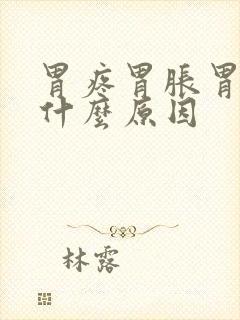 胃疼胃脹胃
什麼原因
林露